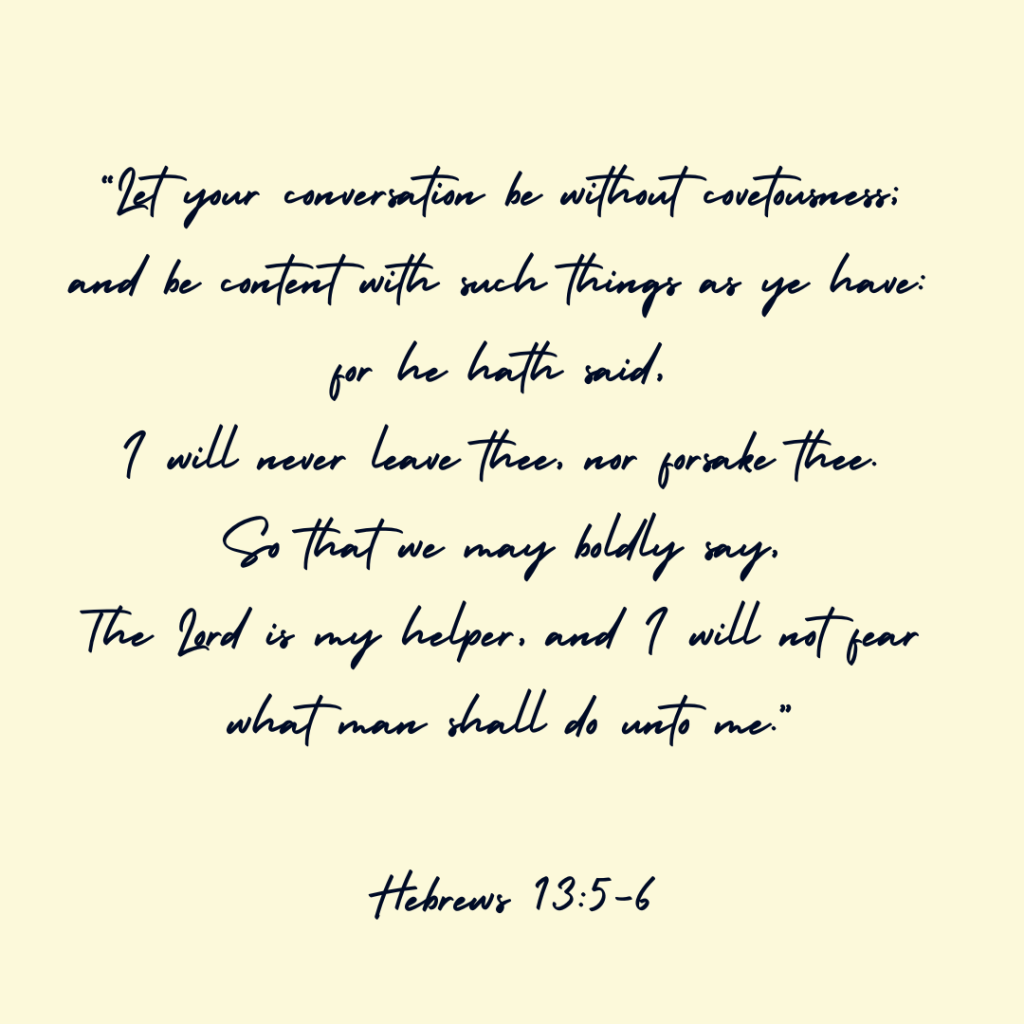 “Let your conversation be without covetousness;
and be content with such things as ye have:
for he hath said,
I will never leave thee, nor forsake thee.
So that we may boldly say,
The Lord is my helper, and I will not fear
what man shall do unto me.”
Hebrews 13:5-6